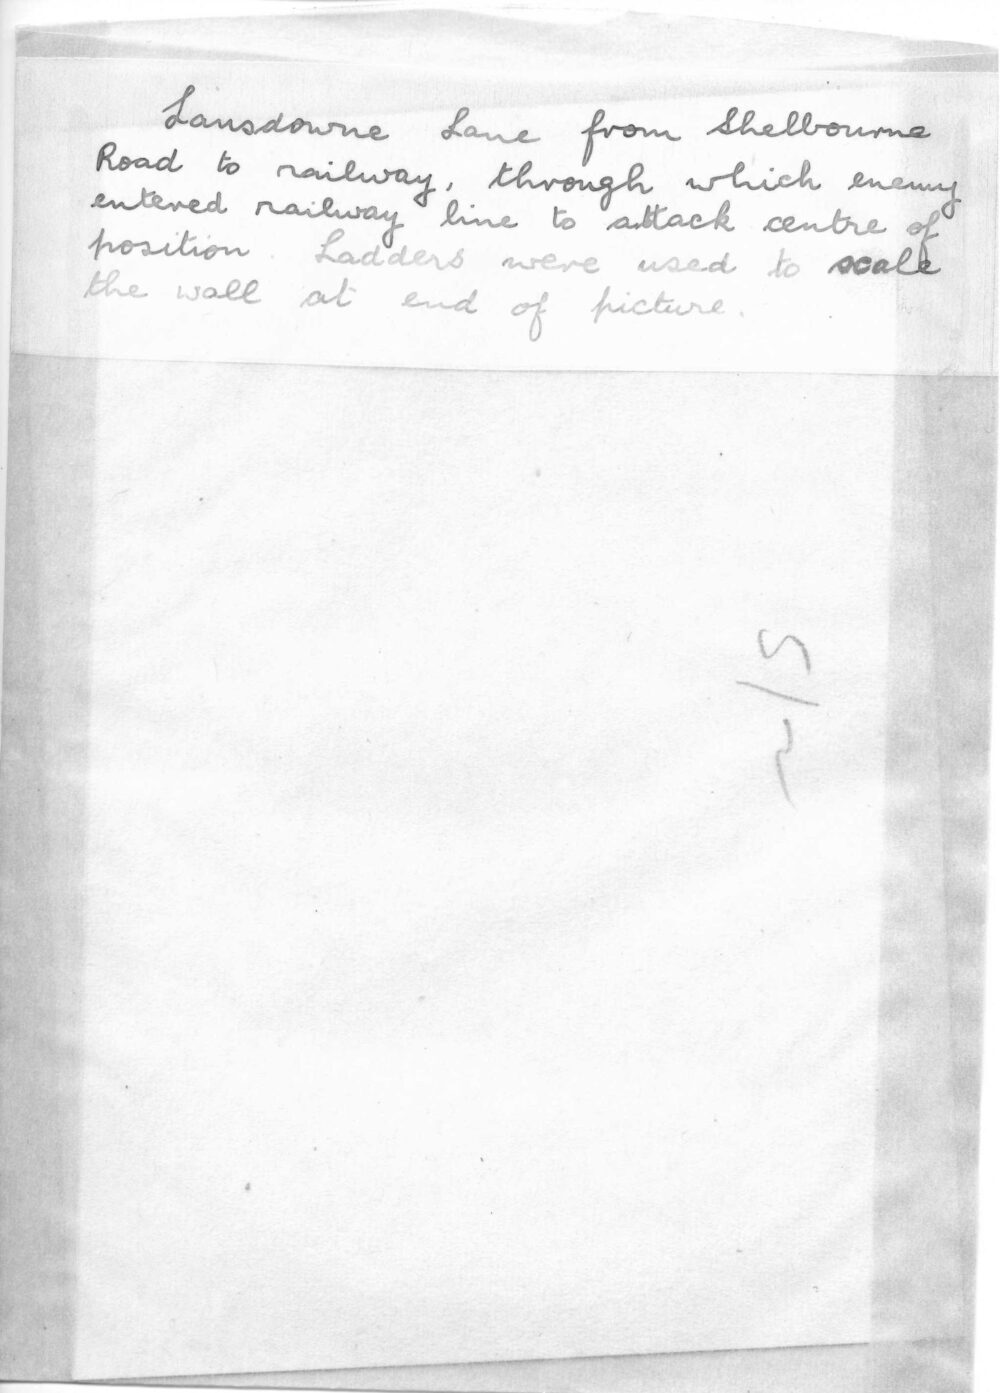 Lansdowne Lane from Shelbourne
Road to railway, through which enemy
entered railway line to attack centre of
position. Ladders were used to scale
the wall at end of picture.